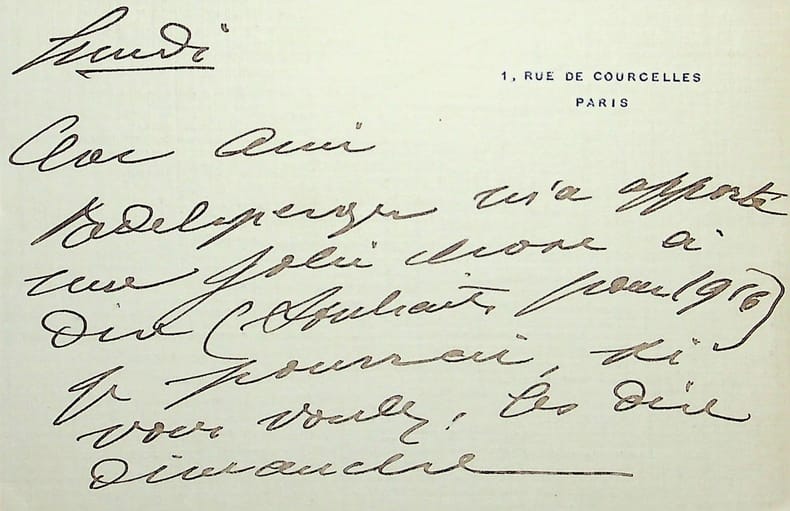 Lundi
1, RUE DE COURCELLES
PARIS
Cher Ami
Adelsperger m'a apporté
une jolie chose à
dire (Souhaits pour 1916)
Je pourrai, si
vous voulez, les dire
dimanche